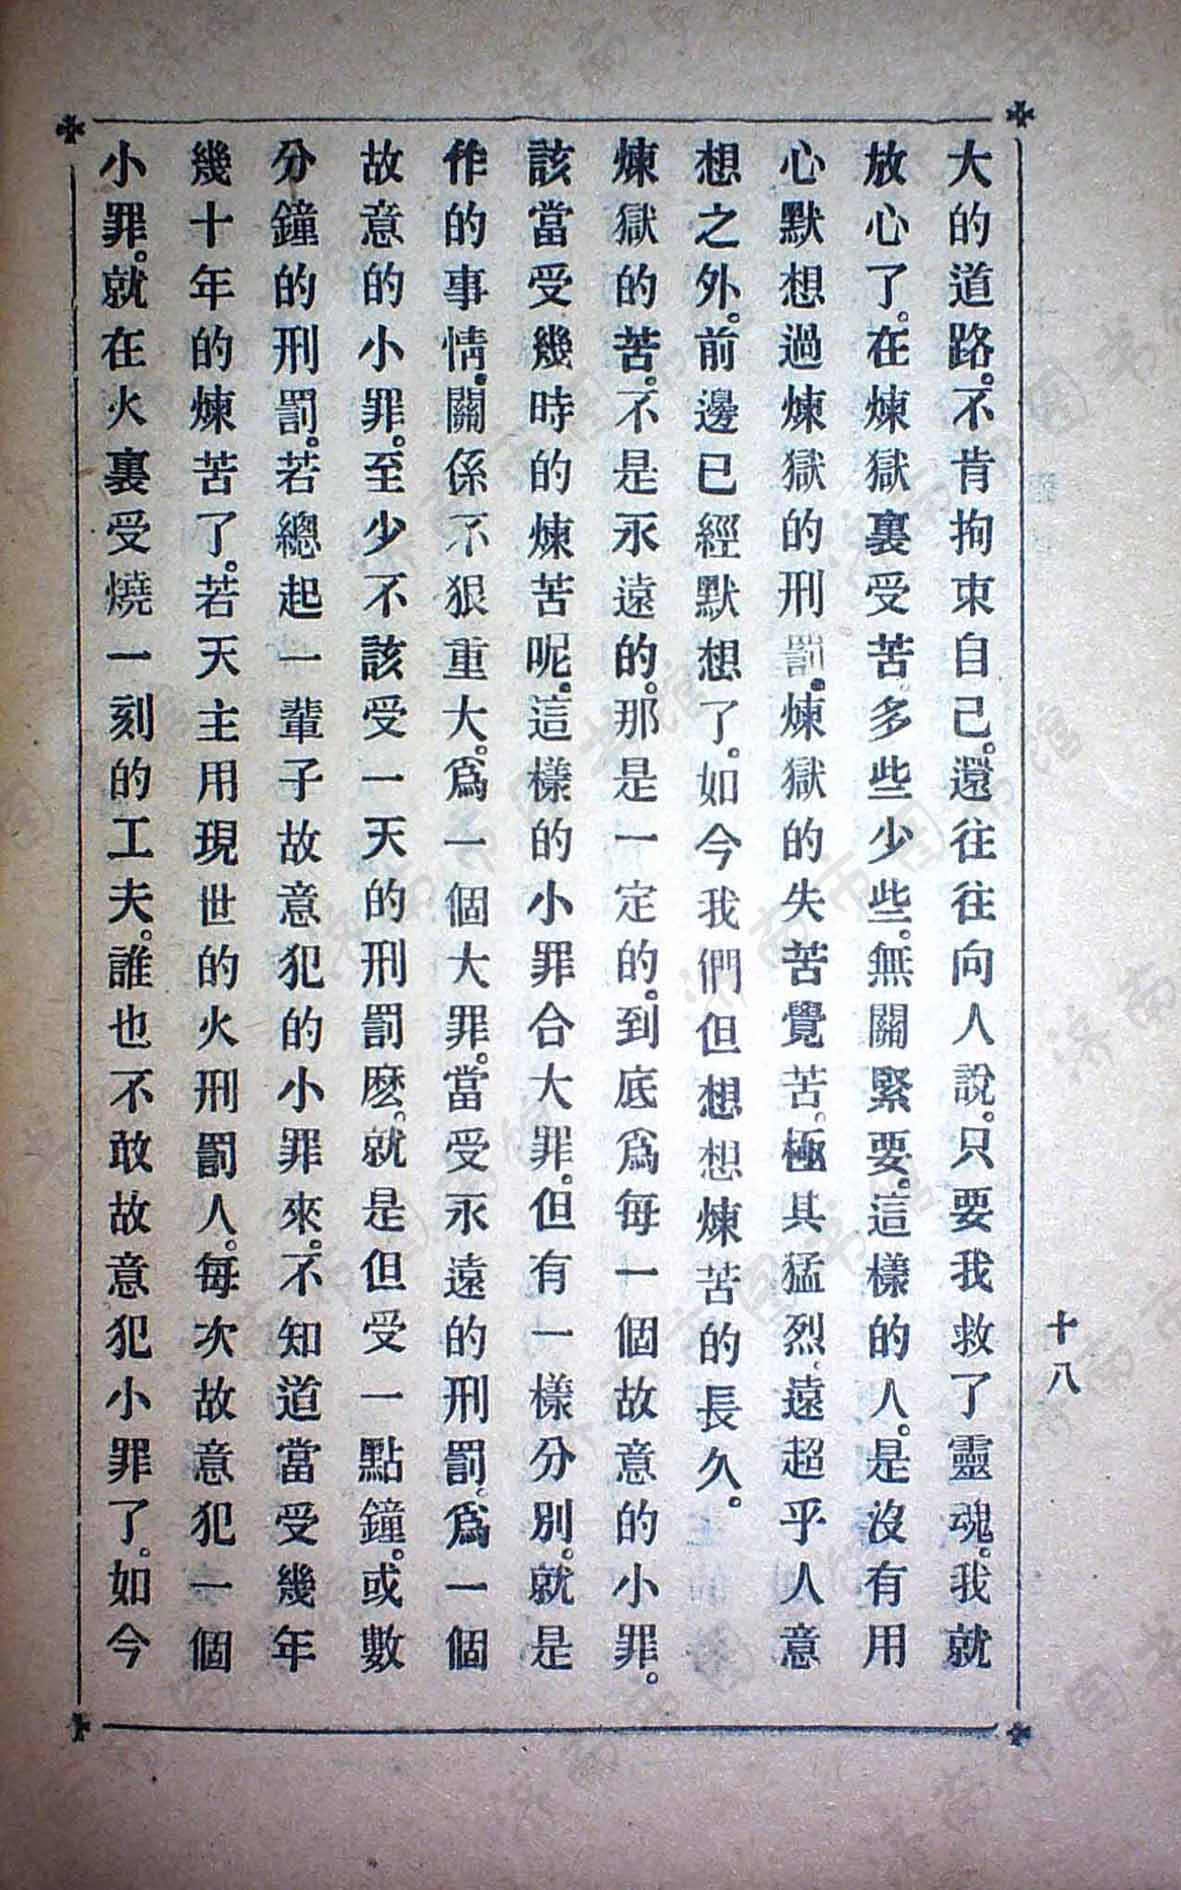 大的道路。不肯拘束自己。還往往向人說。只要我救了靈魂。我就
放心了。在煉獄裏受苦多些少些。無關緊要。這樣的人。是沒有用
心默想過煉獄的刑罰。煉獄的失苦覺苦。極其猛烈。遠超乎人意
想之外。前邊已經默想了。如今我們但想想煉苦的長久。
煉獄的苦。不是永遠的。那是一定的。到底爲每一個故意的小罪。
該當受幾時的煉苦呢。這樣的小罪合大罪。但有一樣分別。就是
作的事情。關係不狠重大。爲一個大罪。當受永遠的刑罰。爲一個
故意的小罪。至少不該受一天的刑罰麽。就是但受一點鐘。或數
分鐘的刑罰。若總起一輩子故意犯的小罪來。不知道當受幾年
幾十年的煉苦了。若天主用現世的火刑罰人。每次故意犯一個
小罪。就在火裏受燒一刻的工夫。誰也不敢故意犯小罪了。如今
十八
济南市图书馆